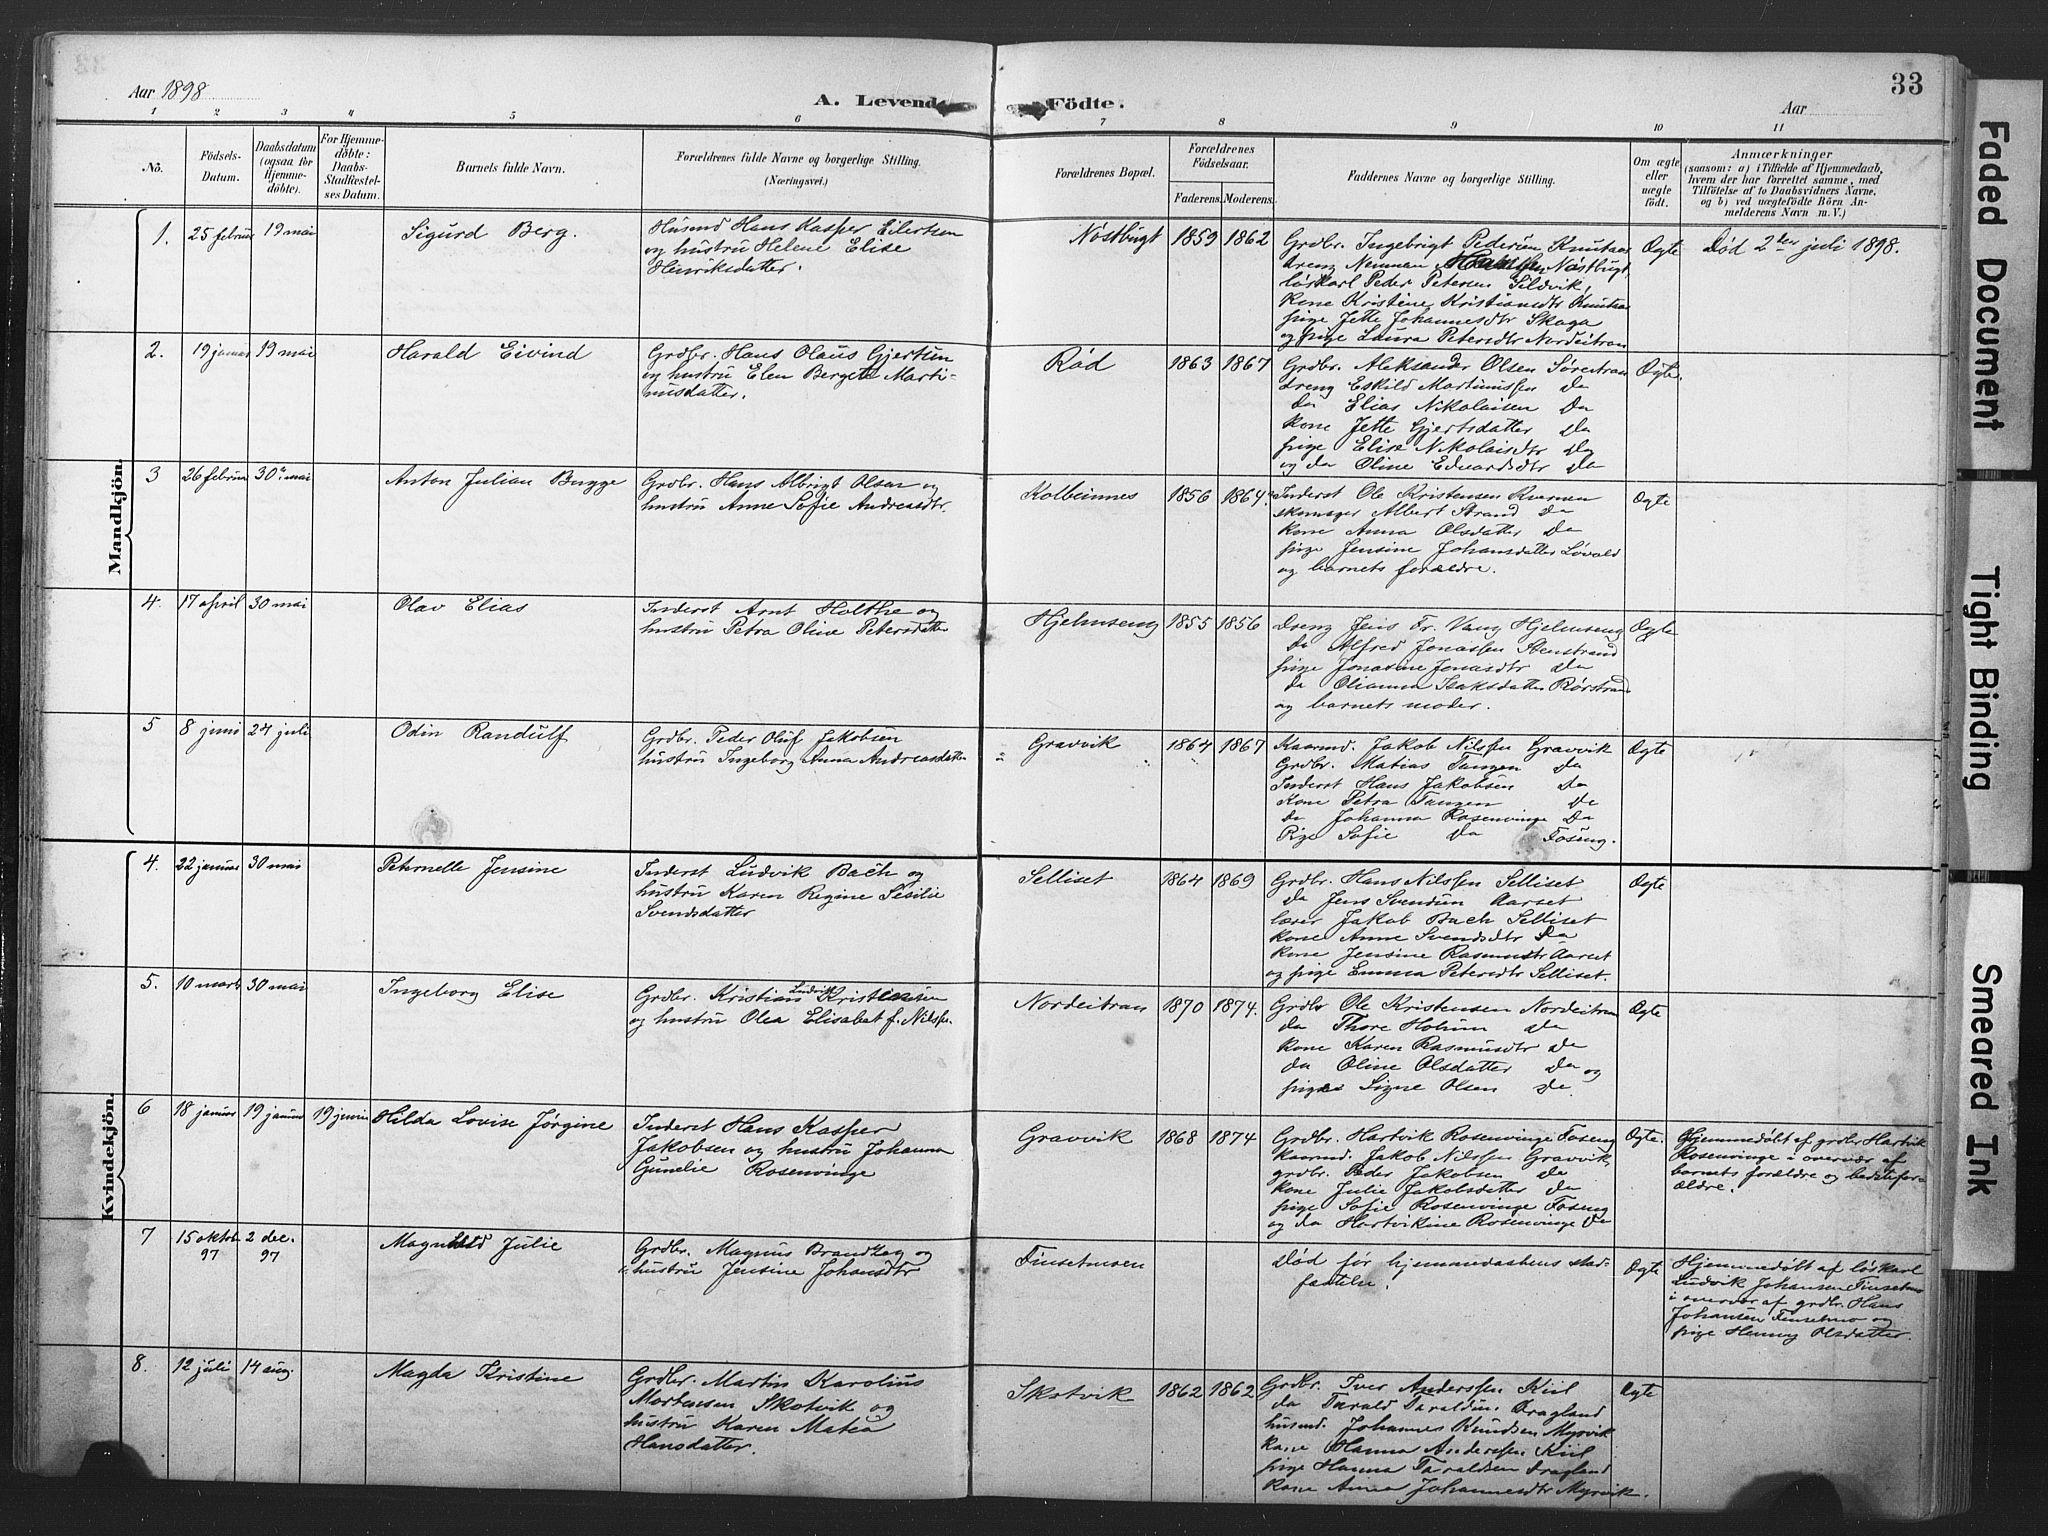 Aar 1898
A. Levende
Födte.
Aar
33
1 2 3 4 5 6 7 8 9 10 11
No.
Födsels-Datum.
Daabsdatum (ogsaa for Hjemmedöbte).
For Hjemmedöbte: Daabs-Stadfæstelses Datum.
Barnets fulde Navn.
Forældrenes fulde Navne og borgerlige Stilling.
(Næringsvei.)
Forældrenes Bopæl.
Forældrenes Födselsaar.
Faderens. Moderens.
Faddernes Navne og borgerlige Stilling.
Om ægte eller uægte födt.
Anmærkninger
(saasom: a) i Tilfælde af Hjemmedaab,
hvem der har forrettet samme, med
Tilföielse af to Daabsvidners Navne,
og b) ved uægtefödte Börn An-
melderens Navn m. V.)
Mandkjön.
1. 25 februar 19 mai
Sigurd Berg.
Husmd Hans Kasper Eilertsen
og hustru Helene Elise
Henriksdatter.
Nøstbugt 1859 1862
Grdbr. Ingebrigt Pedersen Knutaas
dreng Neuman Hansen Nøstbugt,
løskarl Peder Petersen Sildvik,
kone Kristine Kristiansdtr Knutaas
pige Jette Johannesdtr Skaga
og pige Laura Petersdtr Nordeitran
Ægte
Død 2den juli 1898.
2. 19 januar 19 mai
Harald Eivind
Grdbr. Hans Olaus Gjertsen
og hustru Elen Bergete Marti-
nusdatter.
Rød 1863 1867
Grdbr. Aleksander Olsen Søreitran
dreng Eskild Martinussen do
do Elias Nikolaisen do
kone Jette Gjertsdatter do
pige Elise Nikolaisdtr do
og do Oline Eduardsdtr do
Ægte.
3 26 februar 30te mai
Anton Julian Bugge
Grdbr. Hans Albrigt Olsen og
hustru Anne Sofie Andreasdtr.
Kolbeinnes 1856 1864
Inderst Ole Kristensen Kvernen
skomager Albert Strand do
kone Anna Olsdatter do
pige Jensine Johansdatter Løvold
og barnets forældre.
Ægte
4. 17 april 30 mai
Olav Elias
Inderst Arnt Holthe og
hustru Petra Oline Petersdatter
Hjelmseng 1855 1856
Dreng Jens Fr. Vang Hjelmseng
do Alfred Jonassen Stenstrand
pige Jonasine Jonasdtr do
do Olianna Isaksdatter Rørstrand
og barnets moder.
Ægte
5 8 juni 24 juli
Odin Randulf
Grdbr. Peder Oluf Jakobsen
hustru Ingeborg Anna Andreasdatter
Gravvik 1864 1867
Kaarmd. Jakob Nilssen Gravvik
Grdbr. Matias Tangen do
Inderst Hans Jakobsen do
Kone Petra Tangen do
do Johanna Rosenvinge do
Pige Sofie do Foseng.
Ægte
Kvindekjön.
4. 22 januar 30 mai
Peternelle Jensine
Inderst Ludvik Bach og
hustru Karen Regine Sesilie
Svendsdatter
Selliset 1864 1869
Grdbr. Hans Nilssen Selliset
do Jens Svendsen Aarset
lærer Jakob Bach Selliset
kone Anne Svendsdtr do
kone Jensine Rasmusdtr Aarset
og pige Emma Petersdtr Selliset.
Ægte
5. 10 marts 30 mai
Ingeborg Elise
Grdbr. Kristian Ludvik Kristiansen
og hustru Olea Elisabet f. Nilssen.
Nordeitran 1870 1874.
Grdbr Ole Kristensen Nordeitran
do Thore Holum do
kone Karen Rasmusdtr do
do Oline Olsdatter do og
pige Signe Olsen do.
Ægte
6 18 januar 19 januar 19 juni
Hilda Lovise Jørgine
Inderst Hans Kasper
Jakobsen og hustru Johanna
Gunelie Rosenvinge
Gravvik 1868 1874
Grdbr. Hartvik Rosenvinge Foseng
kaarmd. Jakob Nilssen Gravvik,
grdbr. Peder Jakobsen do
kone Julie Jakobsdatter do
pige Sofie Rosenvinge Foseng
og do Hartvikine Rosenvinge do
Ægte.
Hjemmedøbt af grdbr Hartvik
Rosenvinge i overvær af
barnets forældre og bedstefor-
ældre.
7 15 oktbr. 97 2 dec. 97
Magnhild Julie
Grdbr. Magnus Brandtzæg og
hustru Jensine Johansdtr
Finsetmoen
Død før hjemmedaabens stad-
fæstelse.
Ægte
Hjemmedøbt af løskarl
Ludvik Johansen Finsetmo
i overvær af grdbr. Hans
Johansen Finsetmo og
pige Henny Olsdatter.
8. 12 juli 14 aug.
Magda Kristine
Grdbr. Martin Karolius
Mortensen Skotvik og
hustru Karen Matea
Hansdatter.
Skotvik 1862 1862
Grdbr. Iver Anderssen Kiil
do Tarald Taraldsen Dragland
husmd. Johannes Knudsen Myrvik
kone Hanna Anderssen Kiil
pige Hanna Taraldsen Dragland
kone Anna Johannesdtr Myrvik.
Ægte
Faded Document
Tight Binding
Smeared Ink